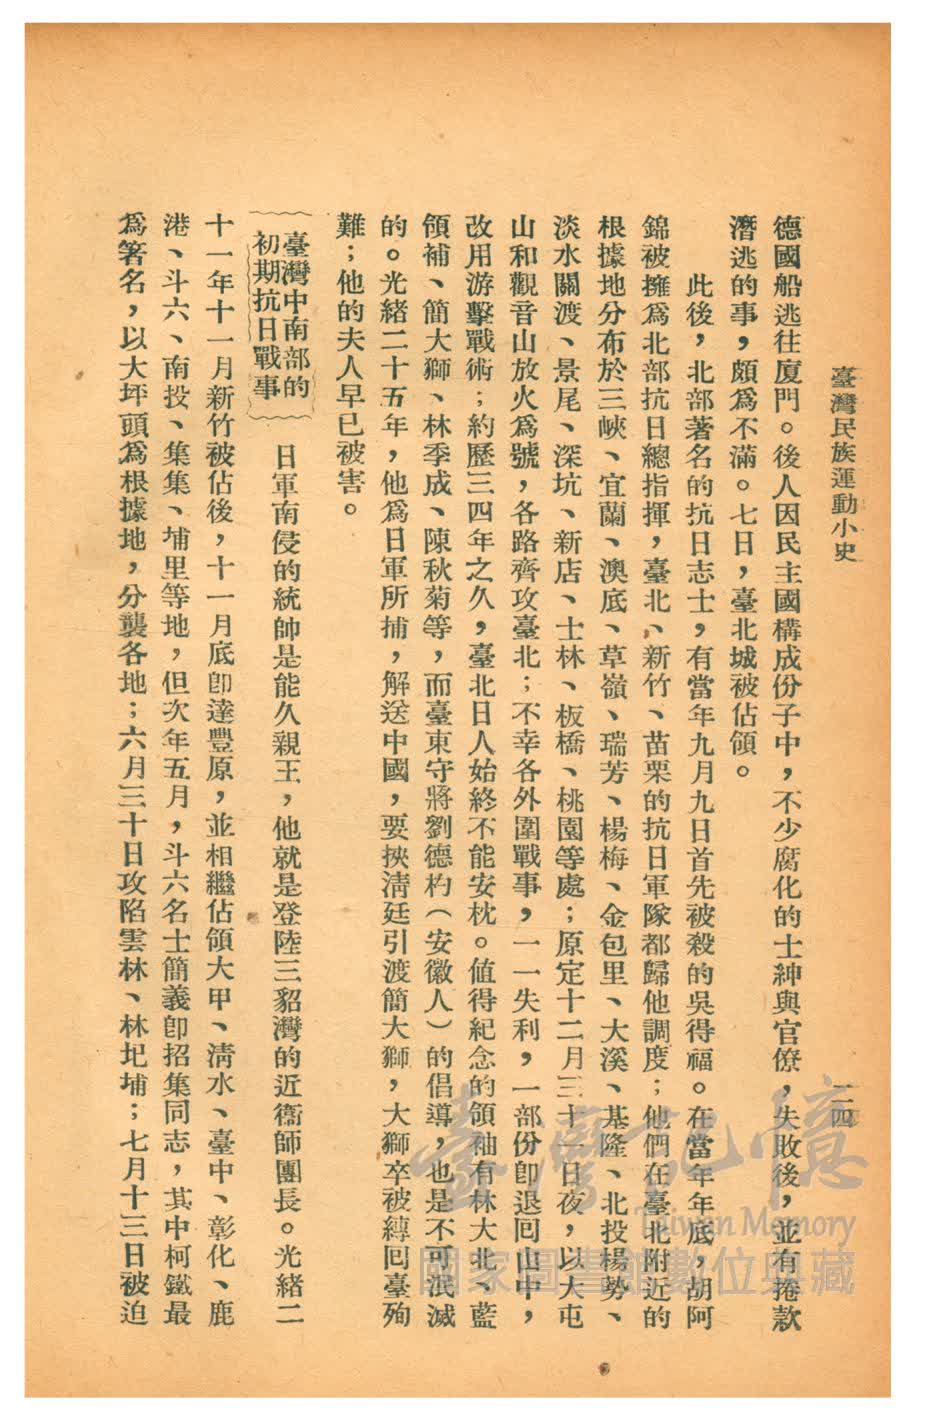 臺灣民族運動小史
二四
德國船逃往廈門。後人因民主國構成份子中，不少腐化的士紳與官僚，失敗後，並有捲款
潛逃的事，頗爲不滿。七日，臺北城被佔領。
此後，北部著名的抗日志士，有當年九月九日首先被殺的吳得福。在當年年底，胡阿
錦被擁爲北部抗日總指揮，臺北、新竹、苗栗的抗日軍隊都歸他調度；他們在臺北附近的
根據地分布於三峽、宜蘭、澳底、草嶺、瑞芳、楊梅、金包里、大溪、基隆、北投楊勢、
淡水關渡、景尾、深坑、新店、士林、板橋、桃園等處；原定十二月三十一日夜，以大屯
山和觀音山放火爲號，各路齊攻臺北；不幸各外圍戰事，一一失利，一部份卽退回山中，
改用游擊戰術；約歷三四年之久，臺北日人始終不能安枕。値得紀念的領袖有林大北、藍
領補、簡大獅、林季成、陳秋菊等，而臺東守將劉德杓（安徽人）的倡導，也是不可泯滅
的。光緒二十五年，他爲日軍所捕，解送中國，要挾淸廷引渡簡大獅，大獅卒被縛回臺殉
難；他的夫人早已被害。
臺灣中南部的
初期抗日戰事
日軍南侵的統帥是能久親王，他就是登陸三貂灣的近衞師團長。光緒二
十一年十一月新竹被佔後，十一月底卽達豐原，並相繼佔領大甲、淸水、臺中、彰化、鹿
港、斗六、南投、集集、埔里等地，但次年五月，斗六名士簡義卽招集同志，其中柯鐵最
爲箸名，以大坪頭爲根據地，分襲各地；六月三十日攻陷雲林、林圯埔；七月十三日被迫
臺灣記憶
Taiwan Memory
國家圖書館數位典藏